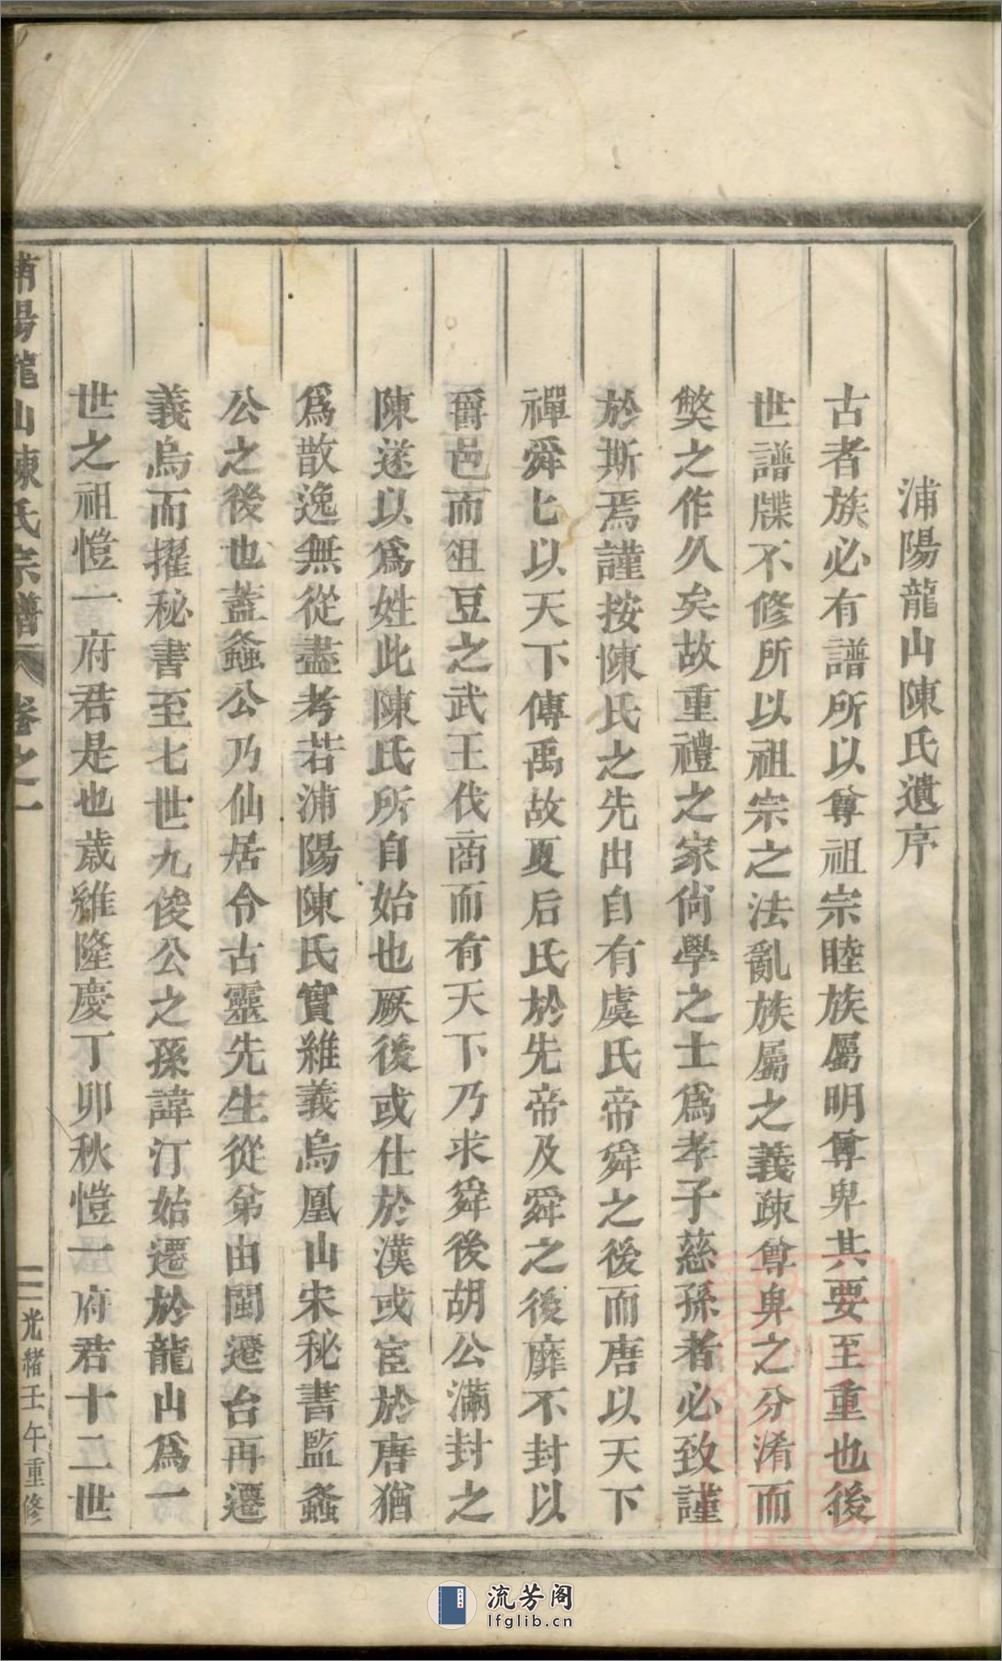 浦陽龍山陳氏遺序
古者族必有譜所以尊祖宗睦族屬明尊卑其要至重也後
世譜牒不修所以祖宗之法亂族屬之義疎尊卑之分淆而
獘之作久矣故重禮之家尙學之士爲孝子慈孫者必致謹
於斯焉謹按陳氏之先出自有虞氏帝舜之後而唐以天下
禪舜七以天下傳禹故夏后氏於先帝及舜之後靡不封以
爵邑而俎豆之武王伐商而有天下乃求舜後胡公滿封之
陳遂以爲姓此陳氏所自始也厥後或仕於漢或宦於唐猶
爲散逸無從盡考若浦陽陳氏實維義烏鳳山宋秘書監鍳
公之後也蓋鍳公乃仙居令古靈先生從弟由閩遷台再遷
義烏而擢秘書至七世九俊公之孫諱汀始遷於龍山爲一
世之祖愷一府君是也歲維隆慶丁卯秋愷一府君十二世
浦陽龍山陳氏宗譜 卷之一
二 光緒壬午重修
流芳阁
lfglib.cn